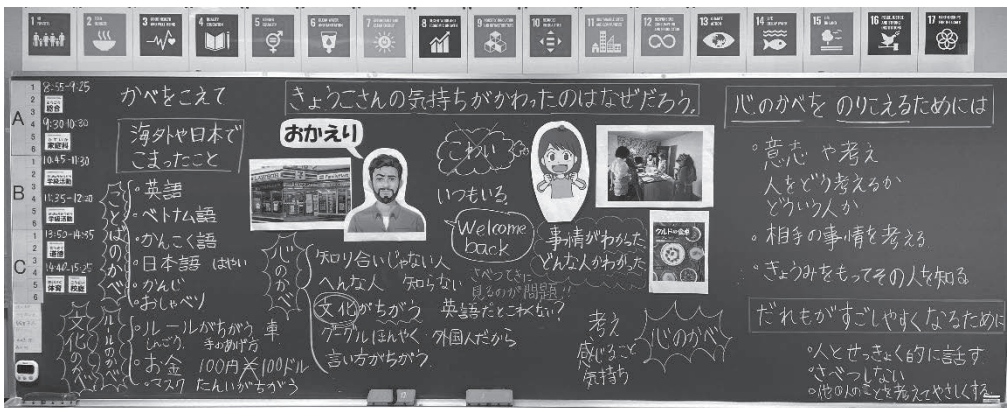 1
2
3
4
5
6
7
8
9
10
11
12
13
14
15
16
17
A
B
C
8:55-9:25
総合
9:30-10:30
家庭科
10:45-11:30
学級活動
11:35-12:20
学級活動
13:50-14:35
道徳
14:40-15:25
体育
校庭
かべをこえて
海外や日本で
こまったこと
ことばのかべ
・英語
・ベトナム語
・かんこく語
・日本語 はやい
・かんじ
・おしゃべり
文化のかべ
ルールのかべ
・ルールがちがう 車
しんごう 手のあげ方
・お金 100円 100ドル
・マスク たんいがちがう
きょうこさんの気持ちがかわったのはなぜだろう。
おかえり
こわい
いつもいる。
Welcome
back
心のかべ
知り合いじゃない人
へんな人 知らない
文化がちがう
グーグルほんやく
言い方がちがう
さべつてきに
見るのが問題!!
英語だとこわくない?
外国人だから
事情がわかった
どんな人かわかった
クルドの食卓
考え
感じること
気持ち
心のかべ
心のかべを のりこえるためには
・意志や考え
人をどう考えるか
どういう人か
・相手の事情を考える
・きょうみをもってその人を知る
だれもがすごしやすくなるために
・人とせっきょく的に話す
・さべつしない
・他の人のことを考えてやさしくする